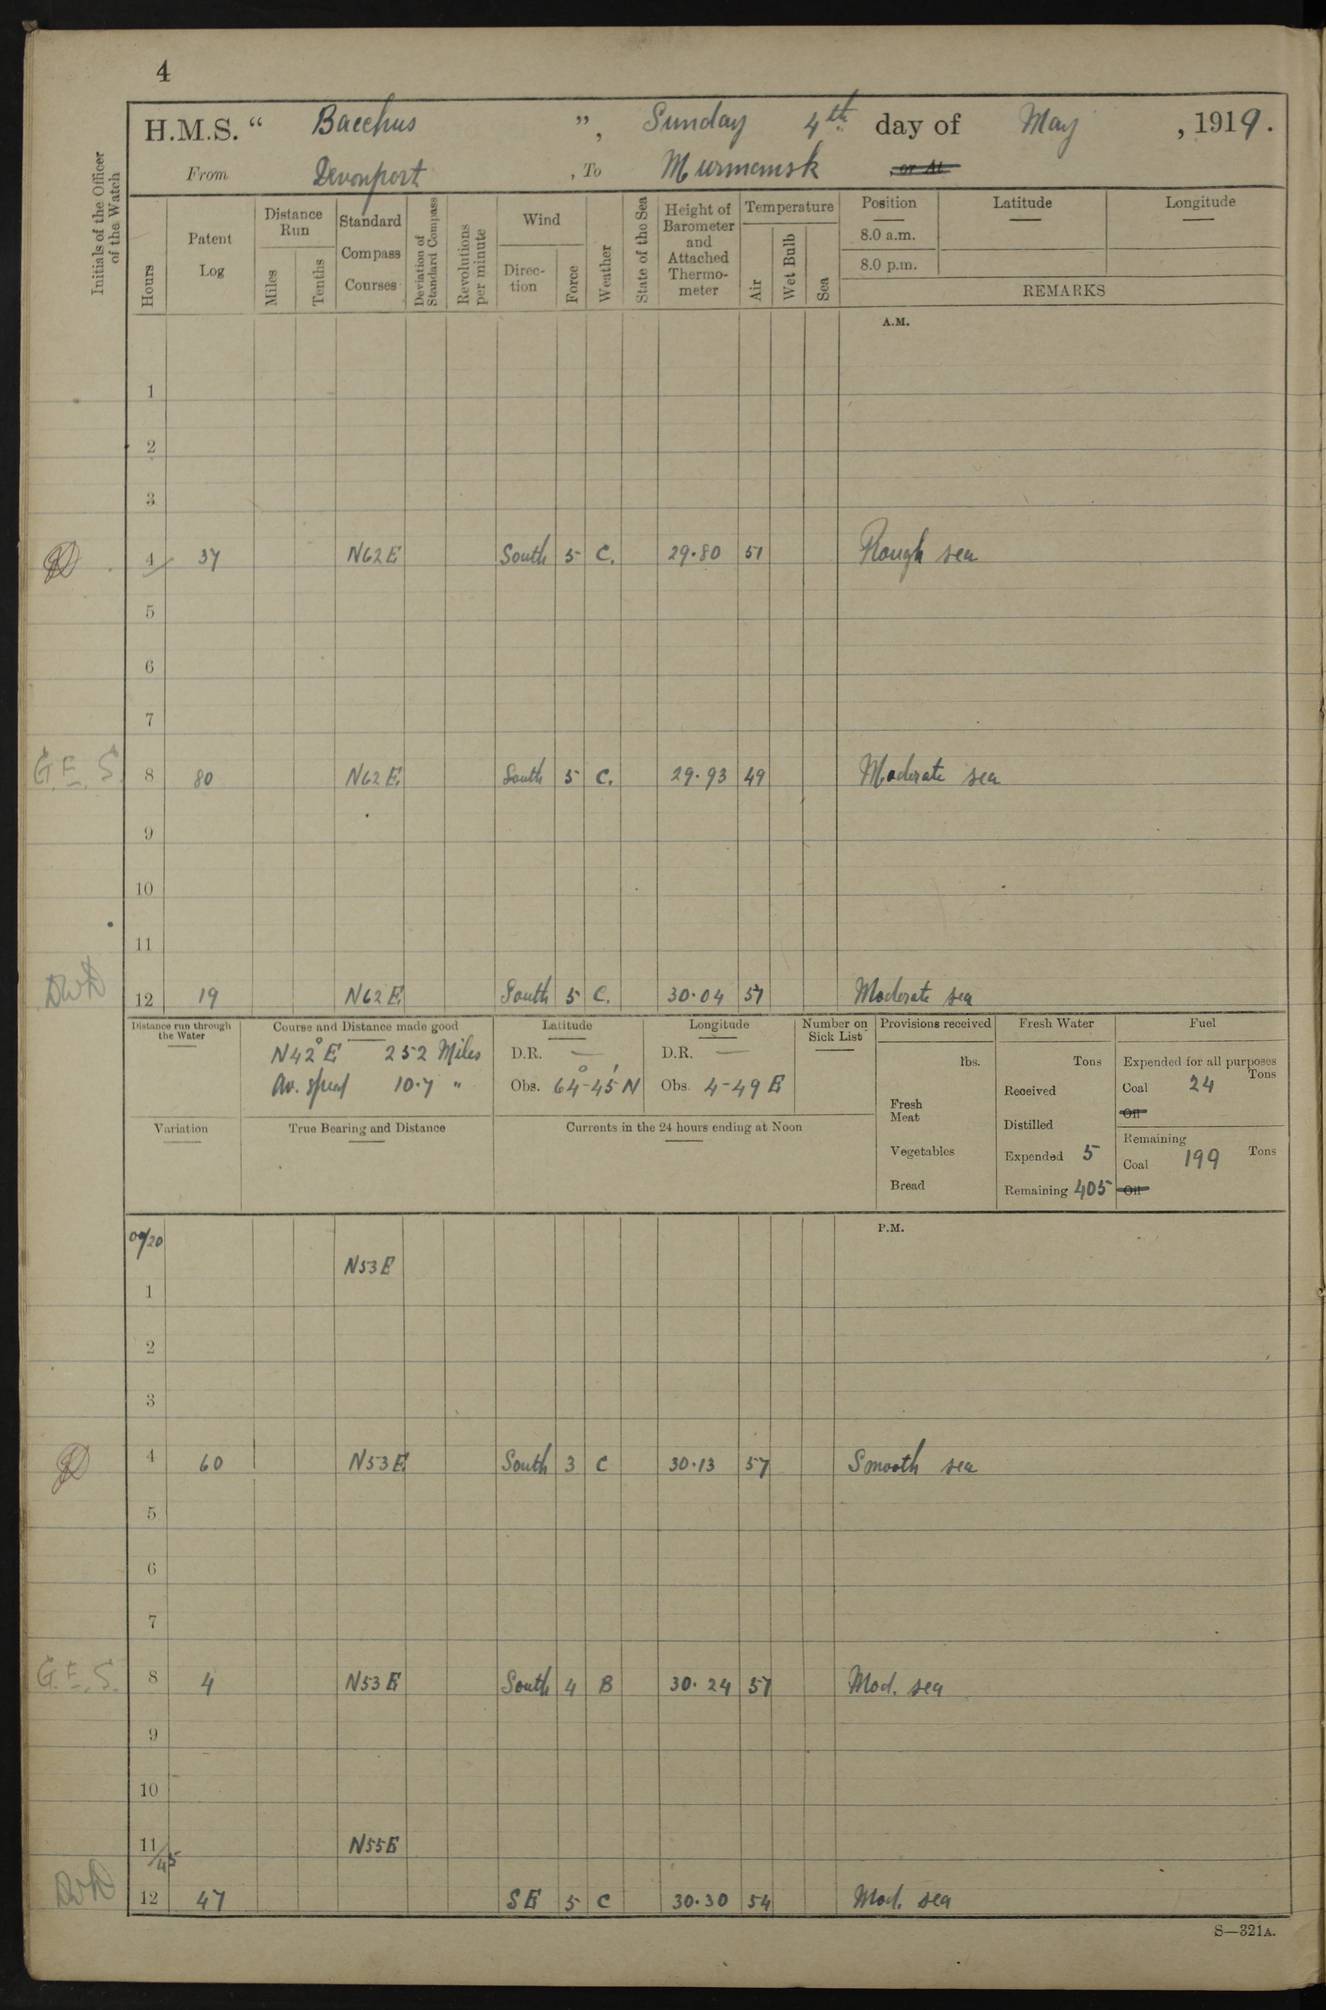 4
H.M.S. “ Bacchus ”, Sunday 4th day of May , 1919.
From Devonport , To Murmansk , or At
Initials of the Officer of the Watch
Hours
Patent Log
Distance Run
Miles
Tenths
Standard Compass Courses
Deviation of Standard Compass
Revolutions per minute
Wind
Direc-tion
Force
Weather
State of the Sea
Height of Barometer and Attached Thermo-meter
Temperature
Air
Wet Bulb
Sea
Position
8.0 a.m.
8.0 p.m.
Latitude
Longitude
REMARKS
A.M.
1
2
3
4 37 N62E South 5 C. 29.80 51 Rough sea
5
6
7
G.E.S. 8 80 N62E South 5 C. 29.93 49 Moderate sea
9
10
11
12 19 N62E South 5 C. 30.04 57 Moderate sea
Distance run through the Water
Course and Distance made good
N42°E 252 Miles
Av. speed 10.7 "
Latitude
D.R. —
Obs. 64°-45'N
Longitude
D.R. —
Obs. 4-49 E
Number on Sick List
Provisions received
lbs.
Fresh Meat
Vegetables
Bread
Fresh Water
Tons
Received
Distilled
Expended 5
Remaining 405
Fuel
Expended for all purposes
Tons
Coal 24
Oil
Remaining
Coal 199 Tons
Oil
Variation
True Bearing and Distance
Currents in the 24 hours ending at Noon
P.M.
00/20
N53E
1
2
3
4 60 N53E South 3 C 30.13 57 Smooth sea
5
6
7
G.E.S. 8 4 N53E South 4 B 30.24 57 Mod. sea
9
10
11/45 N55E
12 47 SE 5 C 30.30 54 Mod. sea
S—321A.